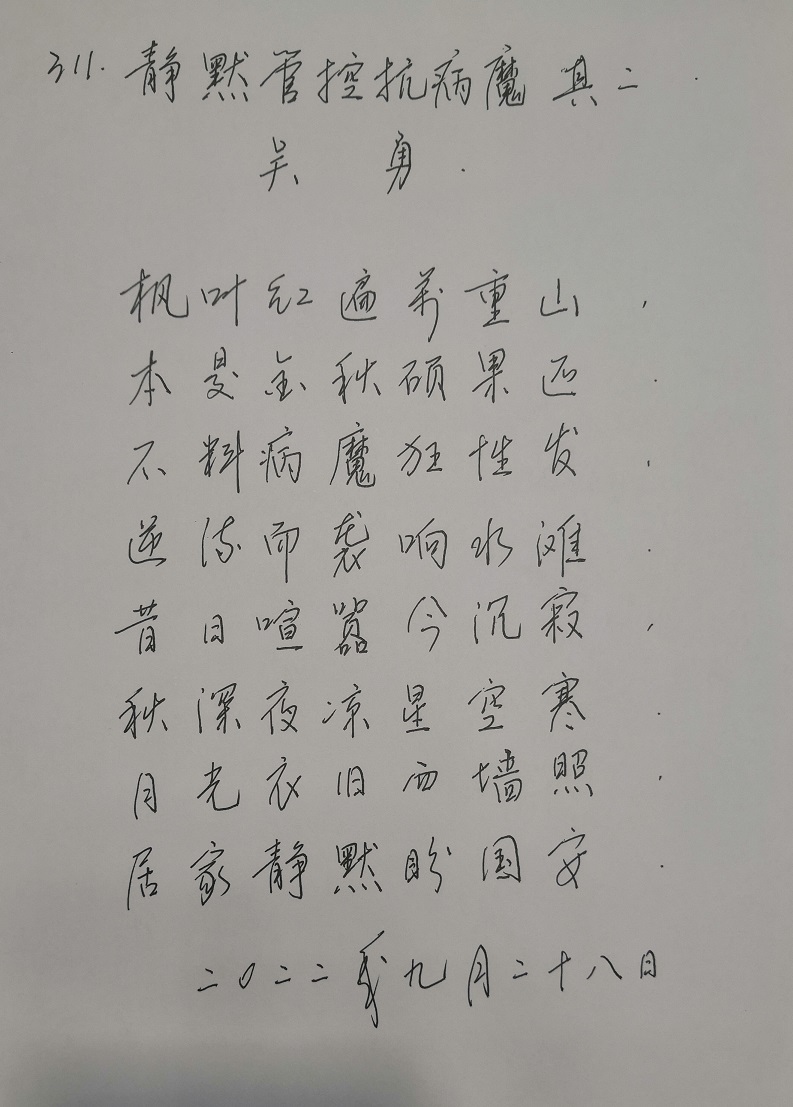 311. 静默管控抗病魔 其二
吴 勇.
枫叶红遍万重山,
本是金秋硕果还.
不料病魔狂性发,
逆流而袭响水滩.
昔日喧嚣今沉寂,
秋深夜凉星空寒.
月光衣旧西墙照,
居家静默盼国安.
二0二二年九月二十八日